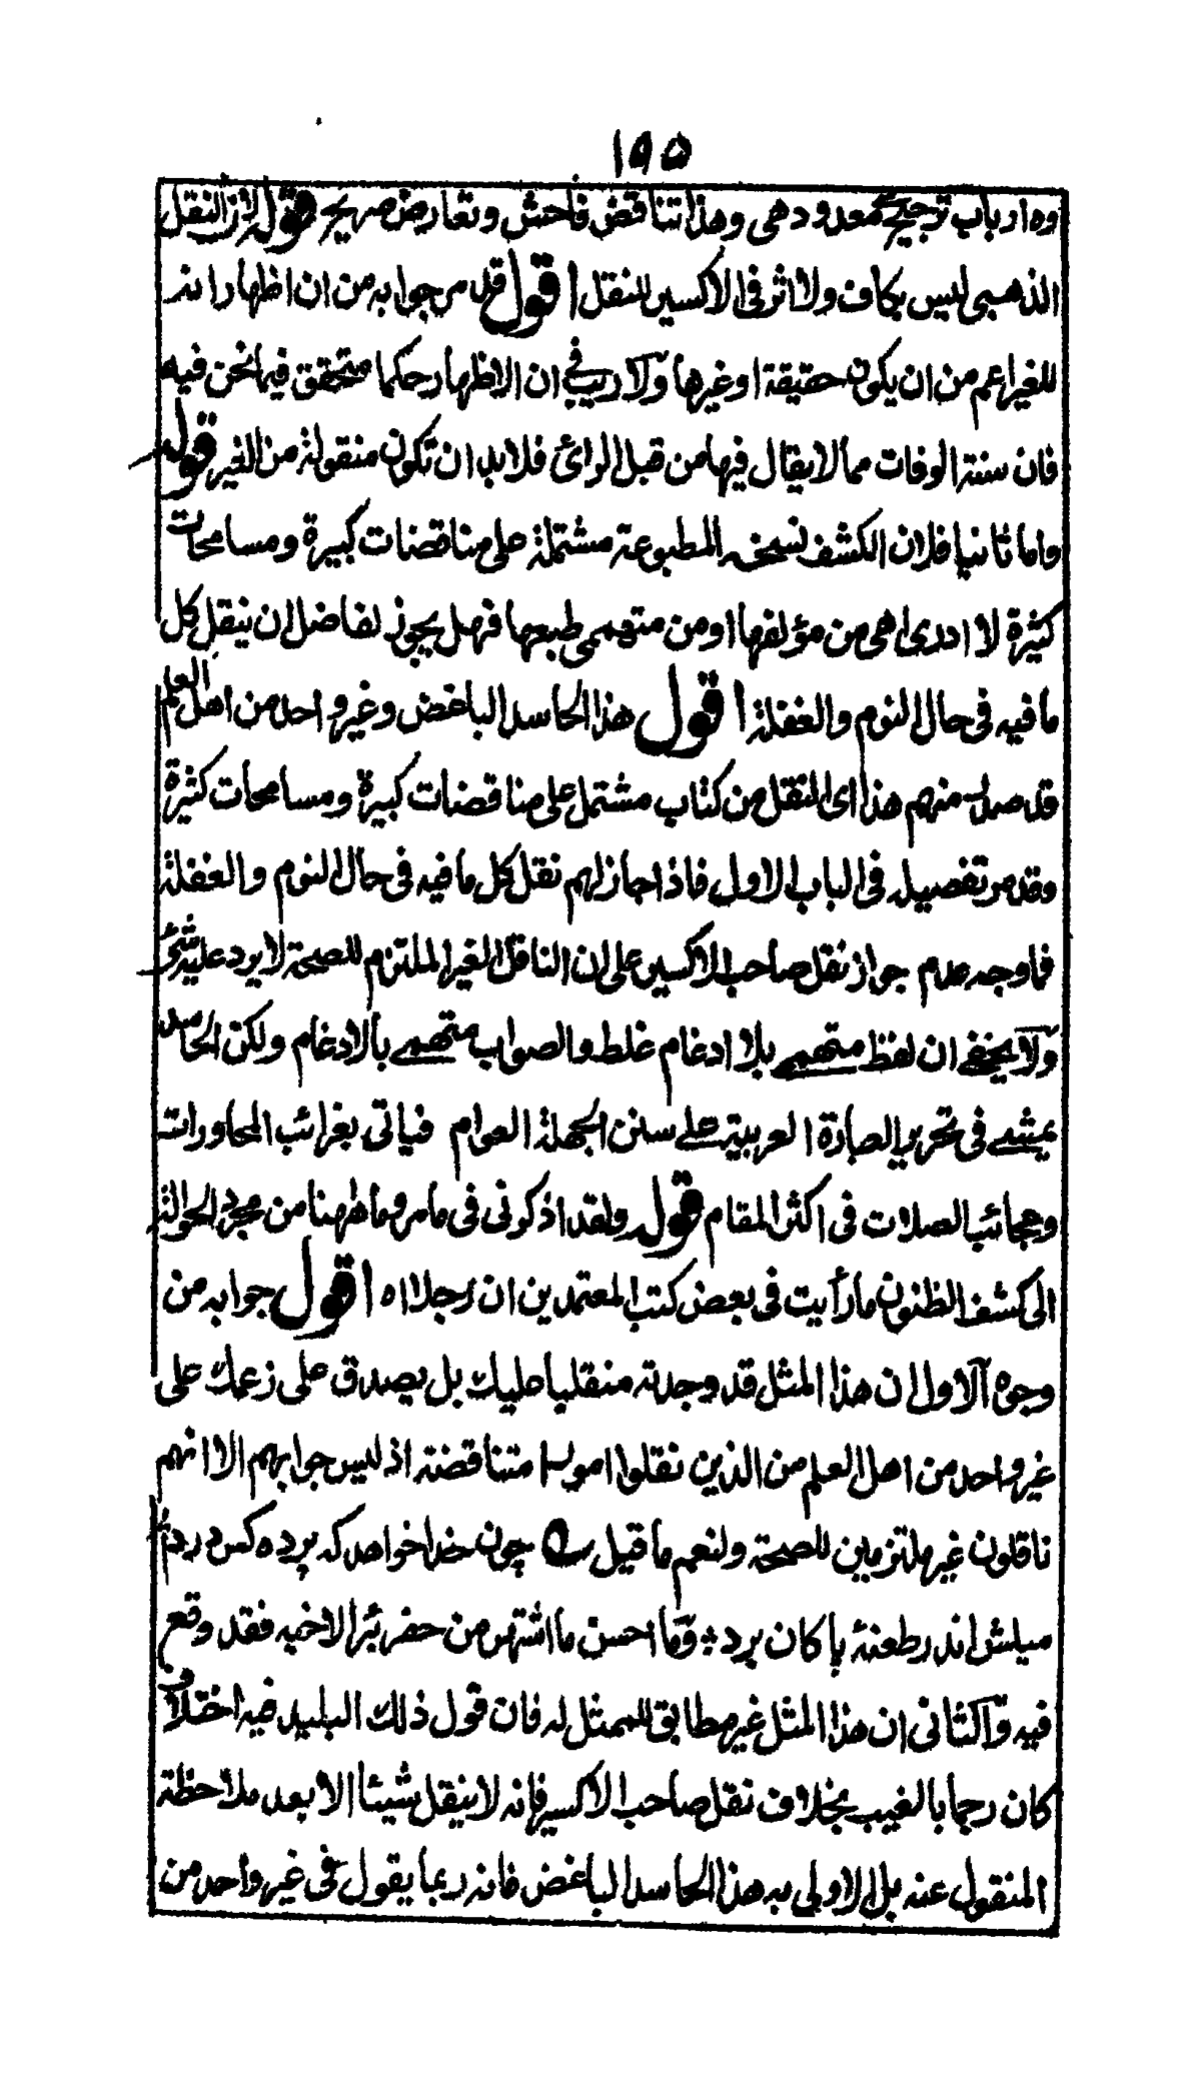 ١٩٥
وه ارباب ترجيح معدود هى وهذا تناقض فاحش وتعارض صريح قوله لان النقل
الذهبى ليس بكاف ولا اثر فى الاكسير للنقل اقول قد مر جوابه من ان اظهار انه
للغير اعم من ان يكون حقيقة او غيرها ولا ريب فى ان الاظهار حكما متحقق فيما نحن فيه
فان سنة الوفات مما لا يقال فيها من قبل الرائ فلا بد ان تكون منقولة من الغير قوله
واما ثانيا فلان الكشف نسخه المطبوعة مشتملة على مناقضات كبيرة ومسامحات
كثيرة لا ادرى اهى من مؤلفها او من متهممى طبعها فهل يجوز لفاضل ان ينقل كل
ما فيه فى حال النوم والغفلة اقول هذا الحاسد الباغض وغير واحد من اهل العلم
قد صدر منهم هذا اى النقل من كتاب مشتمل على مناقضات كبيرة ومسامحات كثيرة
وقد مر تفصيله فى الباب الاول فاذا جاز لهم نقل كل ما فيه فى حال النوم والغفلة
فما وجه عدم جواز نقل صاحب الاكسير على ان الناقل الغير الملتزم للصحة لا يرد عليه شئ
ولا يخفى ان لفظ متهممى بلا ادغام غلط والصواب متهمى بالادغام ولكن الحاسد
يمشى فى تحرير العبارة العربية على سنن الجهلة العوام فياتى بغرائب المحاورات
وعجائب الصلات فى اكثر المقام قوله ولقد اذكرونى فى ما مر وما ههنا من مجرد الحوالة
الى كشف الظنون ما رأيت فى بعض كتب المعتمدين ان رجلا اه اقول جوابه من
وجوه الاول ان هذا المثل قد وجدته منقلبا عليك بل يصدق على زعمك على
غير واحد من اهل العلم من الذين نقلوا امورا متناقضة اذ ليس جوابهم الا انهم
ناقلون غير ملتزمين للصحة ولنعم ما قيل ے چون خدا خواهد كه پرده كس درد
ميلش اندر طعنۀ پاكان برد وما احسن ما اشتهر من حفر بئرا لاخيه فقد وقع
فيه والثانى ان هذا المثل غير مطابق للممثل له فان قول ذلك البليد فيه اختلاف
كان رجما بالغيب بخلاف نقل صاحب الاكسير فانه لا ينقل شيئا الا بعد ملاحظة
المنقول عنه بل الاولى به هذا الحاسد الباغض فانه ربما يقول فى غير واحد من